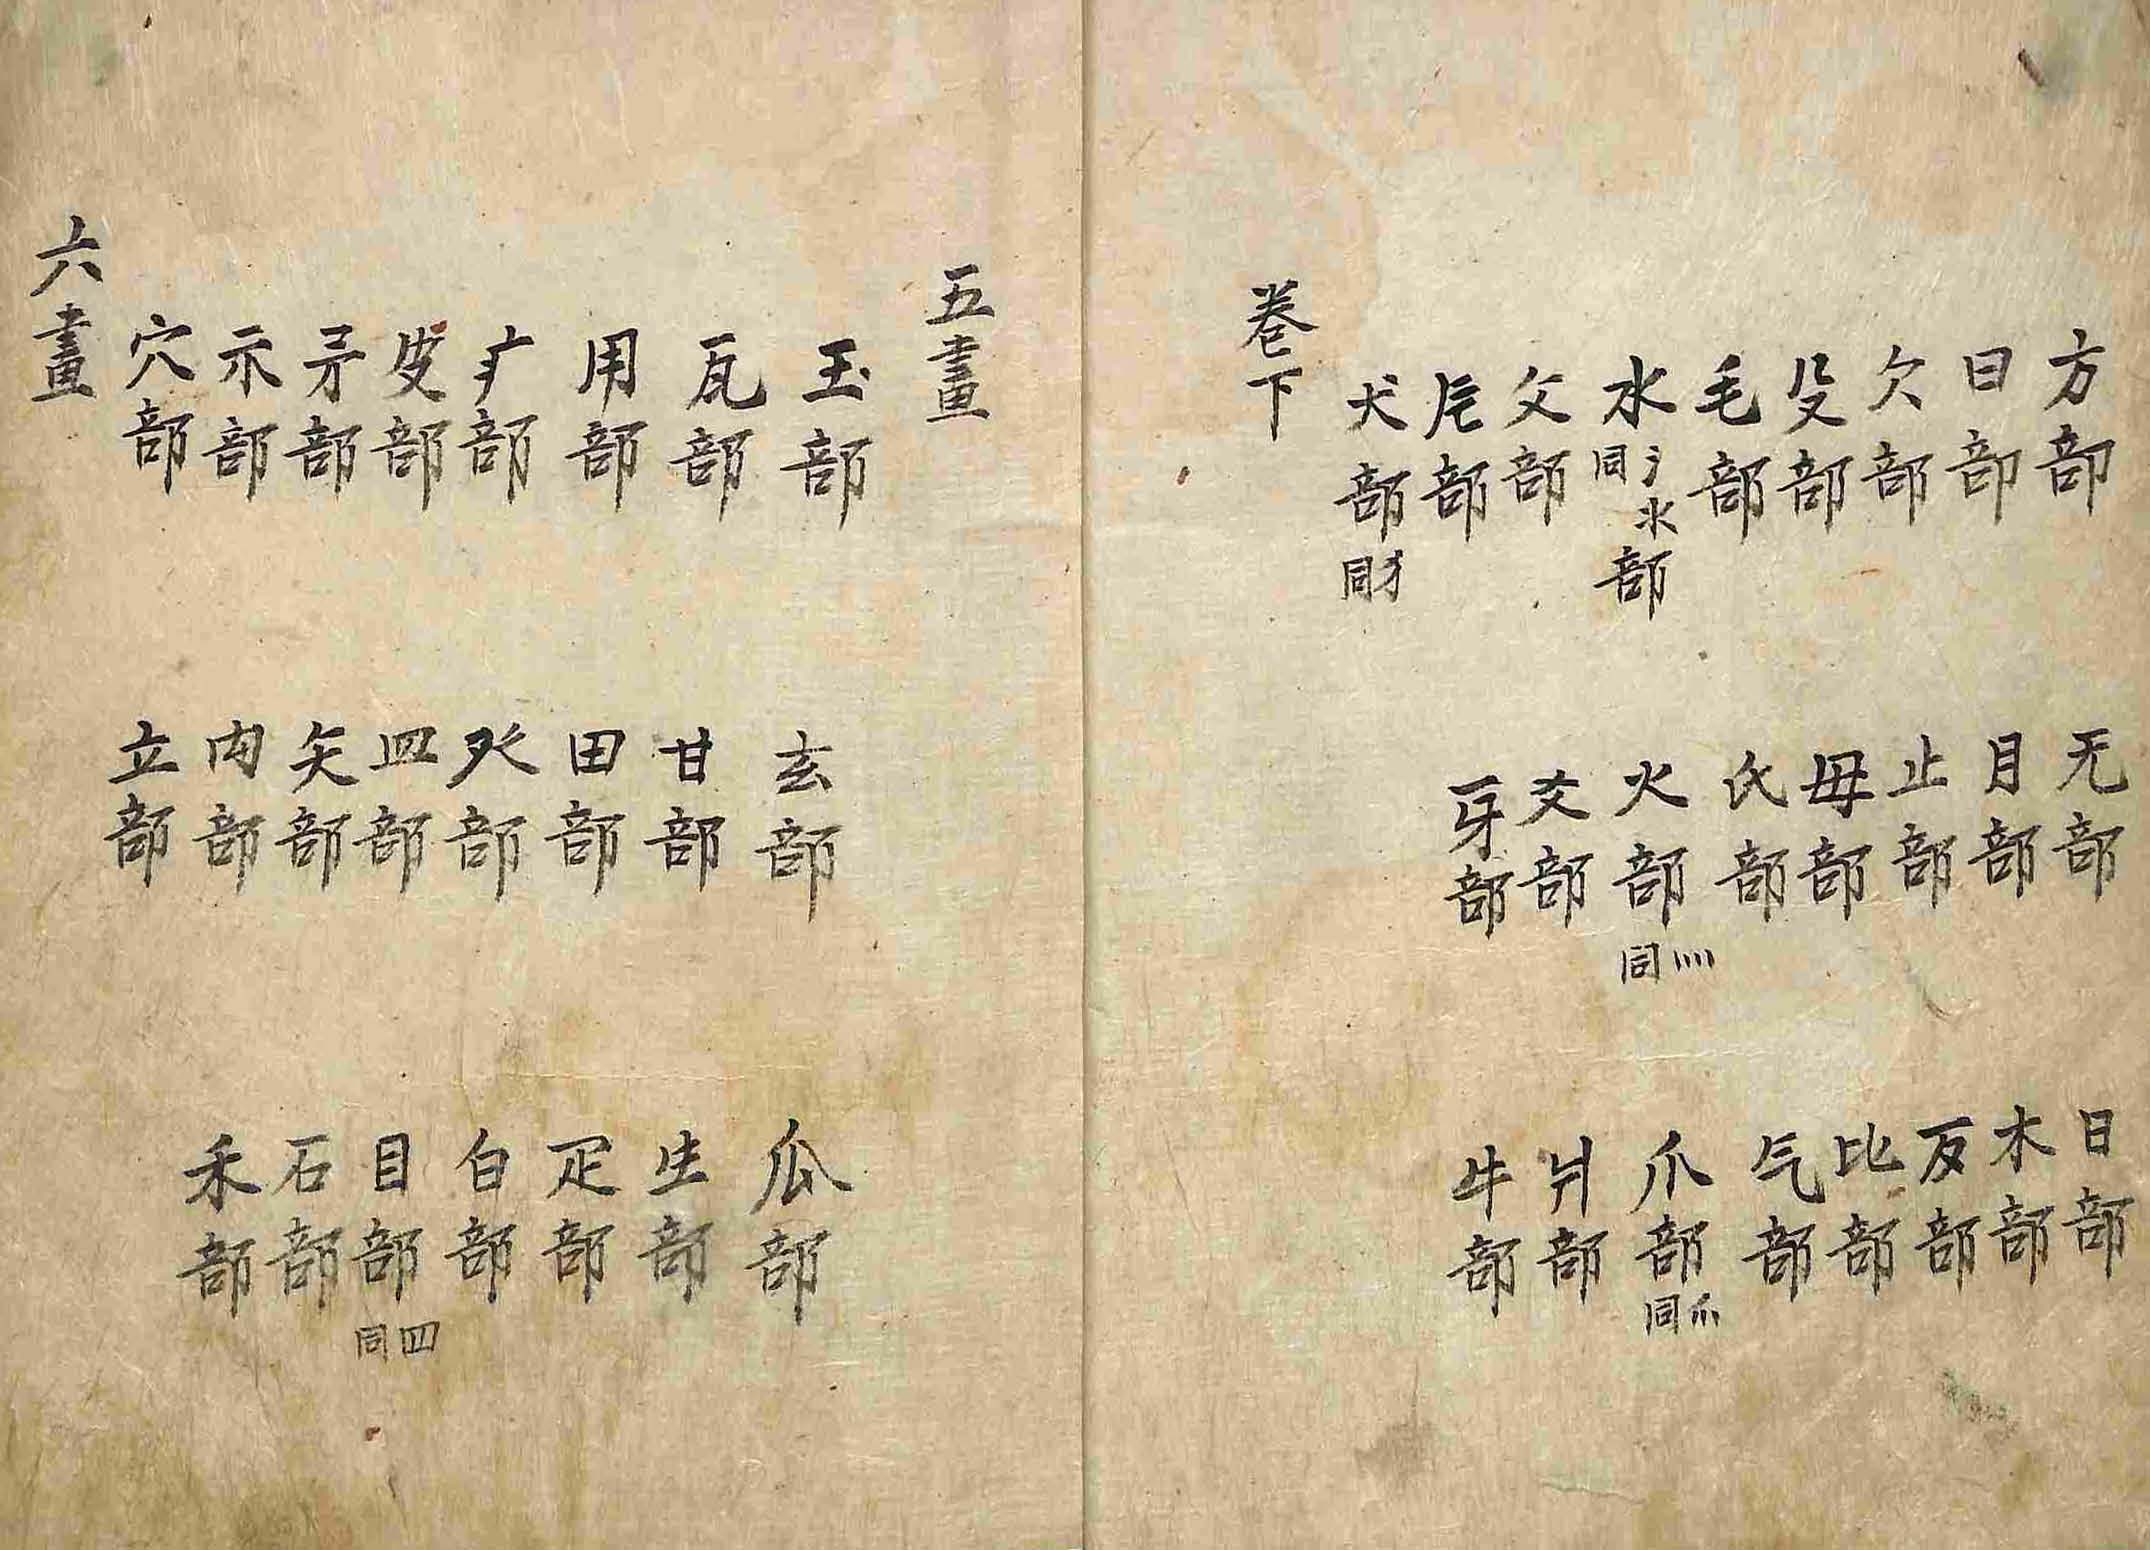 方部 无部 日部
曰部 月部 木部
欠部 止部 歹部
殳部 毋部 比部
毛部 氏部 气部
水同氵氺部 火部同灬 爪部同爫
父部 爻部 爿部
片部 牙部 牛部
犬部同犭
卷下
五畫
玉部 玄部 瓜部
瓦部 甘部 生部
用部 田部 疋部
疒部 癶部 白部
皮部 皿部 目部同罒
矛部 矢部 石部
示部 禸部 禾部
穴部 立部
六畫